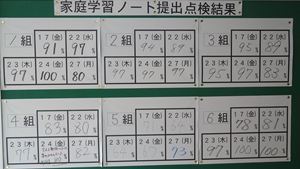 家庭学習ノート提出点検結果
1組 17(金) 91% 22(水) 97%
23(木) 97% 24(金) 100% 27(月) 80%
2組 17(金) 94% 22(水) 89%
23(木) 97% 24(金) 97% 27(月) 97%
3組 17(金) 93% 22(水) 89%
23(木) 95% 24(金) 97% 27(月) 83%
4組 17(金) 83% 22(水) 80%
23(木) 24(金) 27(月)
5組 17(金) 22(水)
23(木) 24(金) 27(月) 73%
6組 17(金) 78% 22(水) 81%
23(木) 97% 24(金) 100% 27(月) 100%